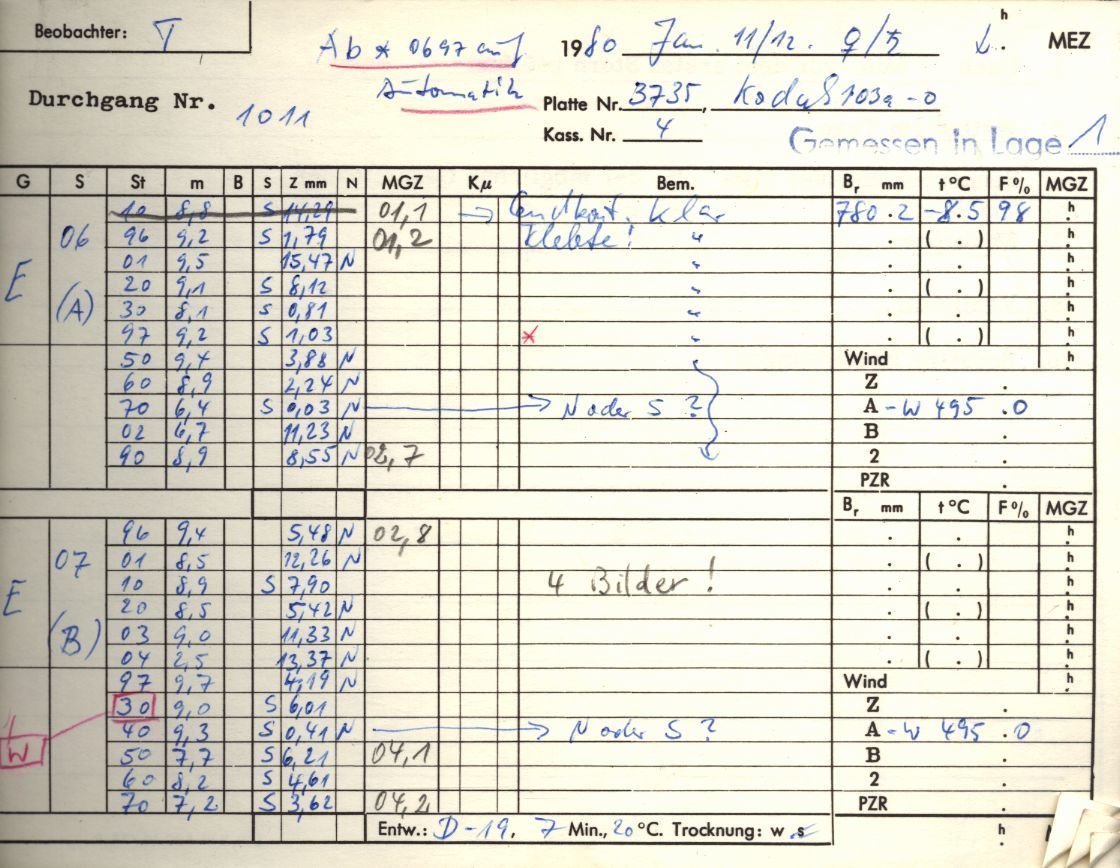 Beobachter: T
Ab * 0697 auf 1980 Jan. 11/12. ♀/♄ h. MEZ
Automatik
Durchgang Nr. 1011
Platte Nr. 3735, Kodak 103a-0
Kass. Nr. 4
Gemessen in Lage 1
G S St m B S Z mm N MGZ Kμ Bem. Br mm t°C F% MGZ
10 8,8 S 14,29 01,1 → klar 780.2 -8.5 98 h
06 96 9,2 S 1,79 01,2 klebte! " . ( . ) h
E 01 9,5 15,47 N " . . h
20 9,1 S 8,12 " . ( . ) h
(A) 30 8,1 S 0,81 " . . h
97 9,2 S 1,03 * " . ( . ) h
50 9,4 3,88 N Wind h
60 8,9 2,24 N Z .
70 6,4 S 0,03 N → N oder S ? A - W 495 .0
02 6,7 11,23 N B .
90 8,9 8,55 N 02,7 2 .
PZR .
Br mm t°C F% MGZ
96 9,4 5,48 N 02,8 . . h
07 01 8,5 12,26 N . ( . ) h
E 10 8,9 S 7,90 4 Bilder! . . h
20 8,5 5,42 N . ( . ) h
(B) 03 9,0 11,33 N . . h
04 2,5 13,37 N . ( . ) h
97 9,7 4,19 N Wind h
30 9,0 S 6,01 Z .
W 40 9,3 S 0,41 N → N oder S ? A - W 495 .0
50 7,7 S 6,21 04,1 B .
60 8,2 S 4,61 2 .
70 7,2 S 3,62 04,2 PZR .
Entw.: D-19, 7 Min., 20 °C. Trocknung: w s h